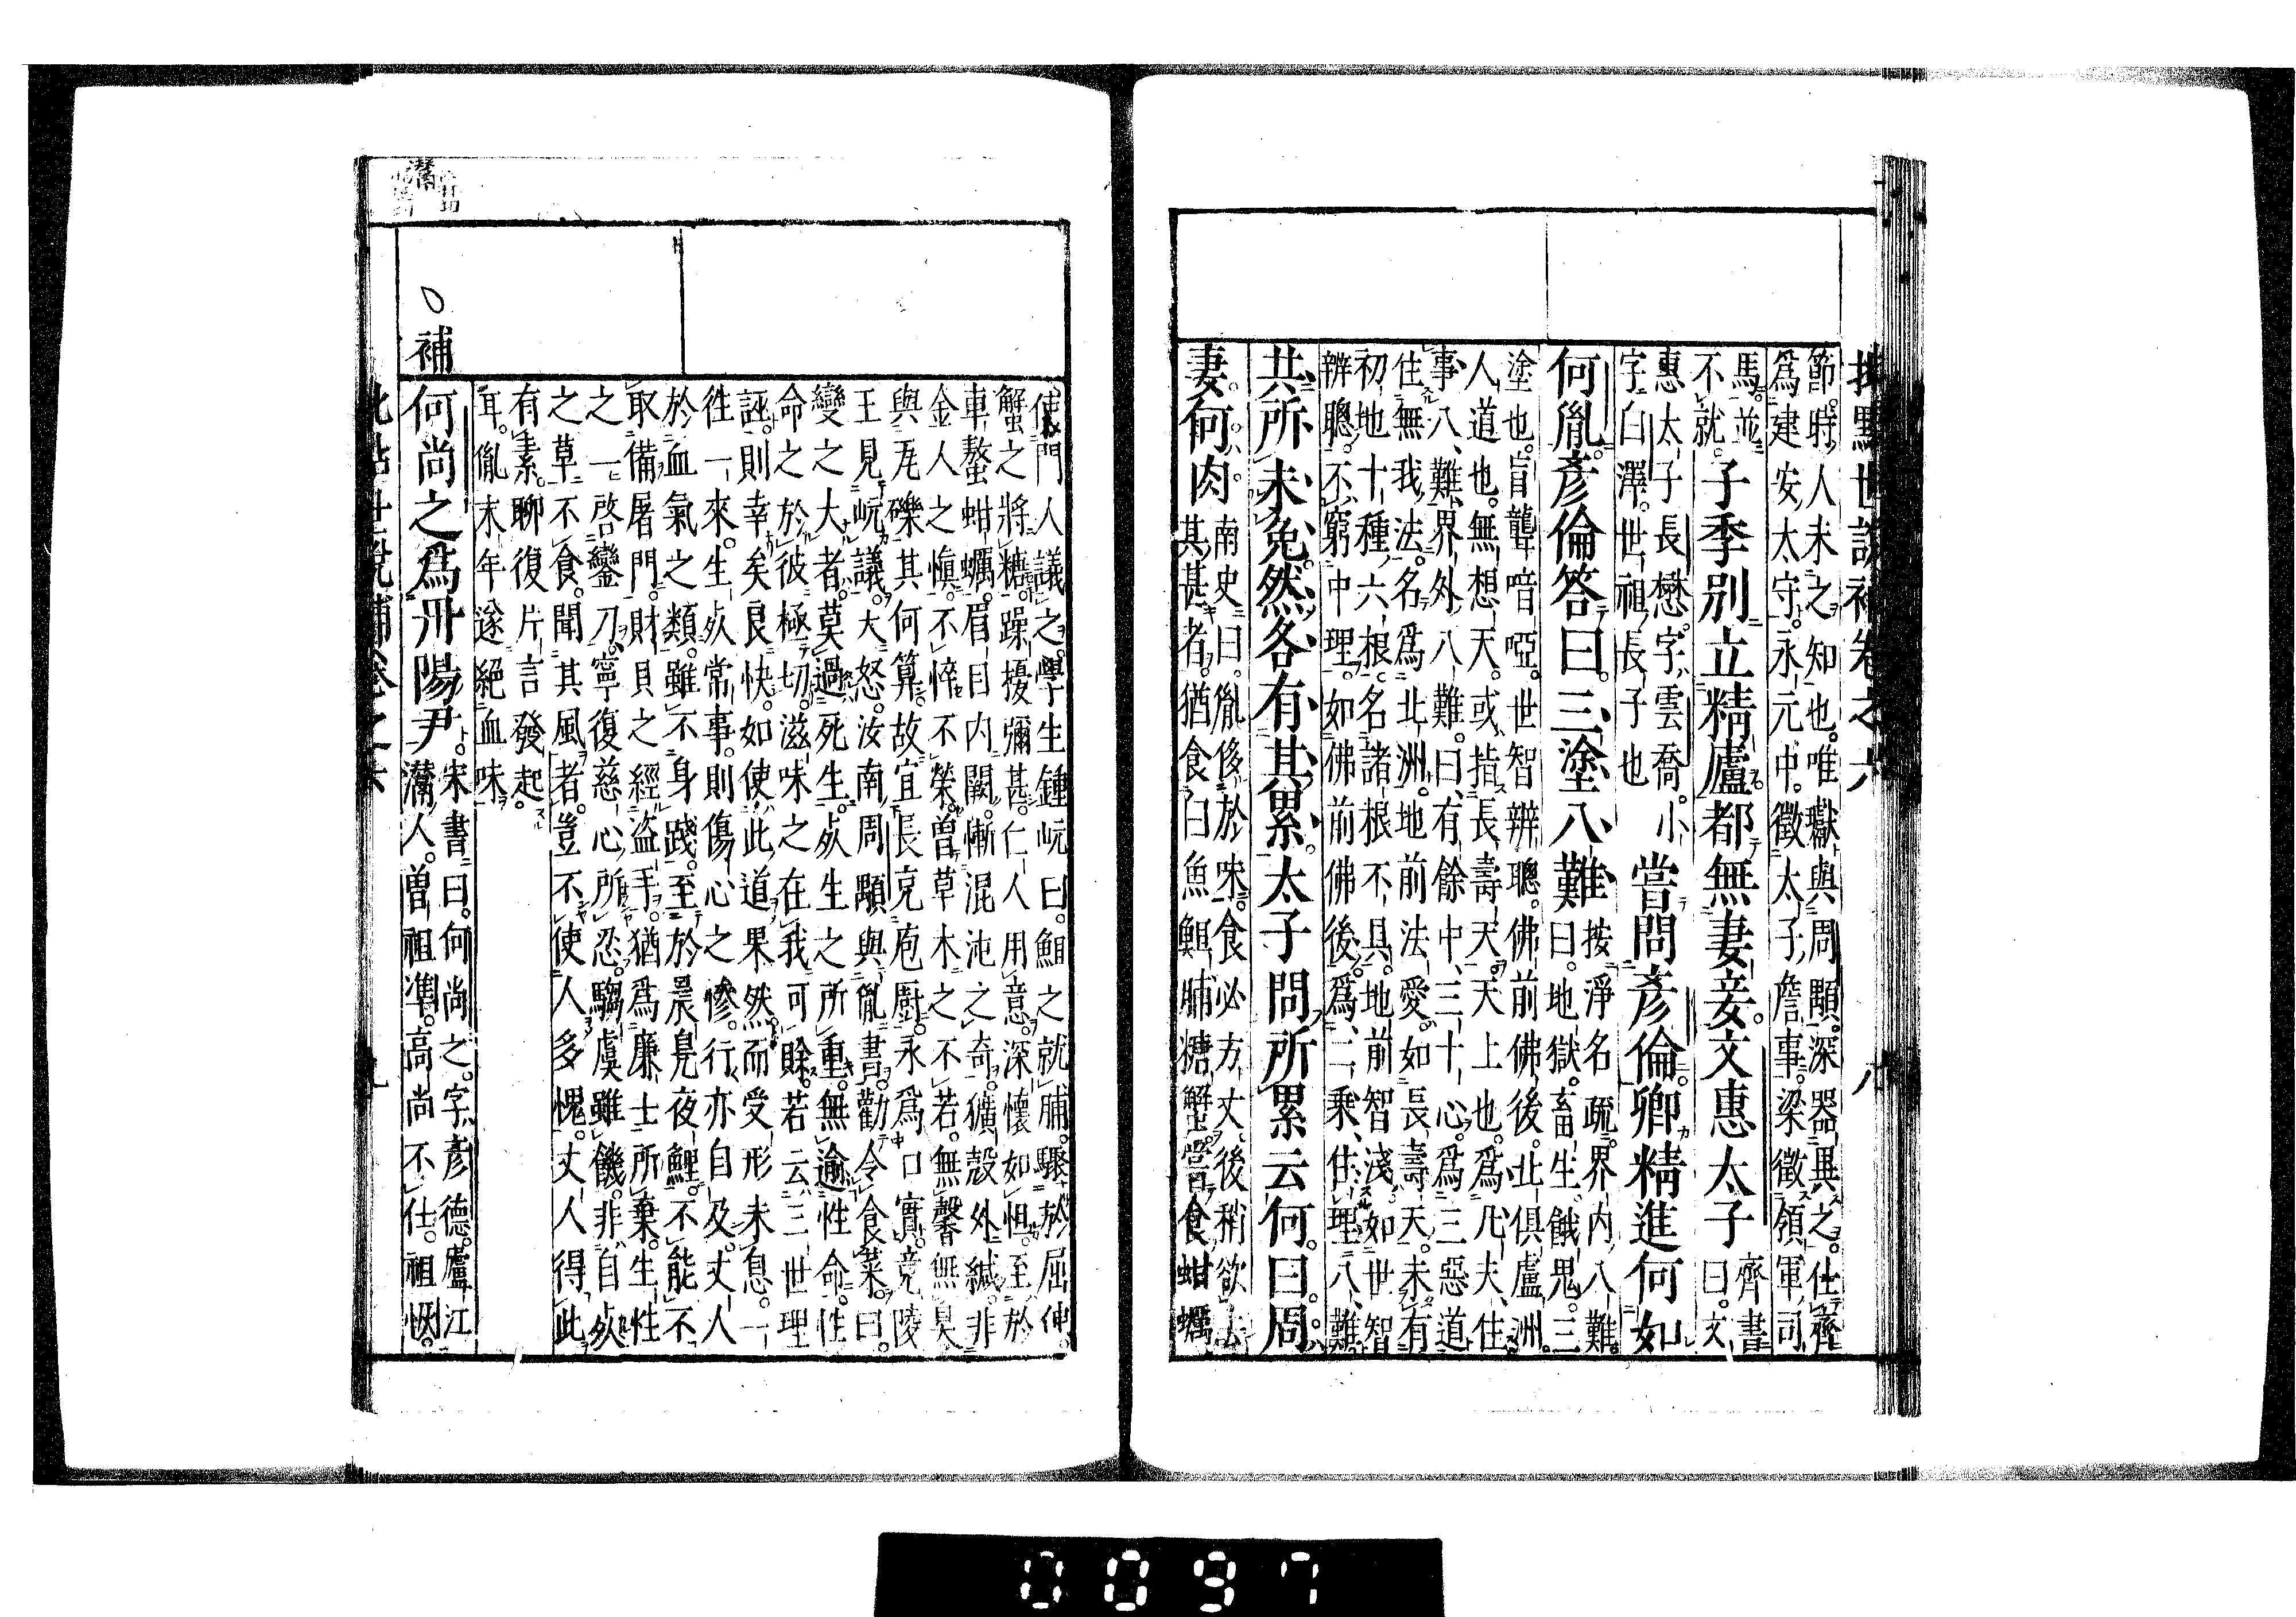 批點世說補卷之六 八
節時人未之知也唯獻與周顒深器異之仕齊
爲建安太守永元中徵太子詹事梁徵領軍司
馬並
不就 子季別立精廬都無妻妾文惠太子 齊書
曰文
惠太子長懋字雲喬小
字白澤世祖長子也 嘗問彥倫卿精進何如
何胤彥倫答曰三塗八難 按淨名疏界内八難
曰地獄畜生餓鬼三
塗也盲聾喑啞世智辨聰佛前佛後北俱盧洲
人道也無想天或指長壽天天上也爲凡夫住
事八難界外八難曰有餘中三十心爲三惡道
住無我法名爲北洲地前法愛如長壽天未有
初地十種六根名諸根不具地前智淺如世智
辨聰不窮中理如佛前佛後爲二乘住理八難
共所未免然各有其累太子問所累云何曰周
妻何肉 南史曰胤侈於味食必方丈後稍欲去
其甚者猶食白魚䱇脯糖蟹嘗食蚶蠣
使門人議之學生鍾岏曰䱇之就脯驟於屈伸
蟹之將糖躁擾彌甚仁人用意深懷如怛至於
車螯蚶蠣眉目内闕慚混沌之奇獷殼外緘非
金人之慎不悴不榮曾草木之不若無馨無臭
與瓦礫其何算故宜長克庖廚永爲口實竟陵
王見岏議大怒汝南周顒與胤書勸令食菜曰
變之大者莫過死生生之所重無逾性命性
命之於彼極切滋味之在我可賒若云三世理
誣則幸矣良快如使此道果然而受形未息一
往一來生死常事則傷心之慘行亦自及丈人
於血氣之類雖不身踐至於晨鳧夜鯉不能不
取備屠門財貝之經盜手猶爲廉士所棄生性
之一啓鸞刀寧復慈心所忍騶虞雖饑非自死
之草不食聞其風者豈不使人多愧丈人得此
有素聊復片言發起
耳胤末年遂絕血味
補
何尚之爲丹陽尹 宋書曰何尚之字彥德廬江
灊人曾祖準高尚不仕祖恢
批點世說補卷之六 九
0097